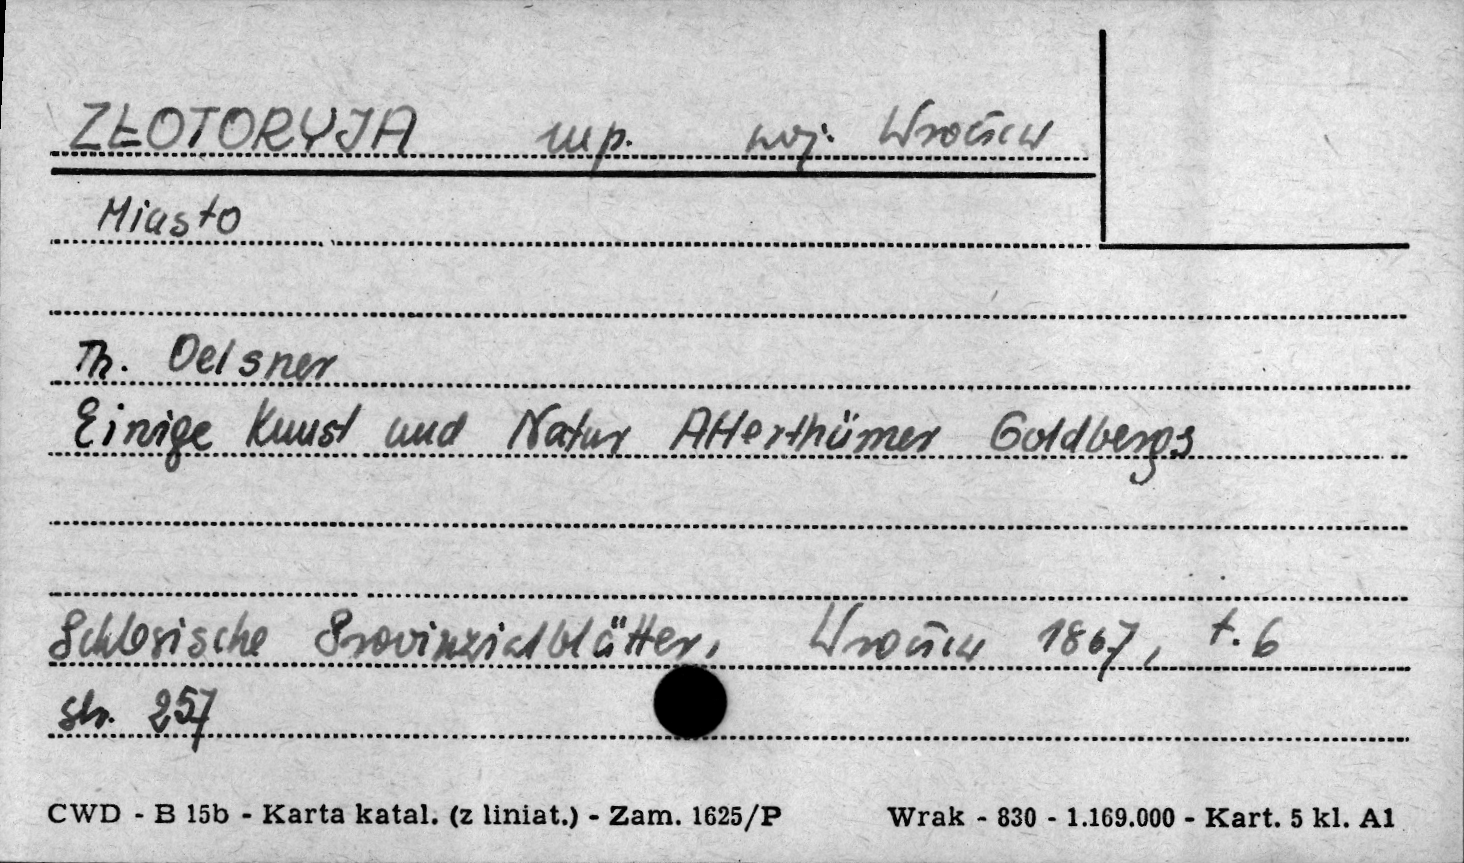 ZŁOTORYJA mp. woj. Wrocław
Miasto
Th. Oelsner
Einige Kunst und Natur Alterthümer Goldbergs
Schlesische Provinzialblätter, Wrocław 1867, t. 6
str. 257
CWD - B 15b - Karta katal. (z liniat.) - Zam. 1625/P Wrak - 830 - 1.169.000 - Kart. 5 kl. A1